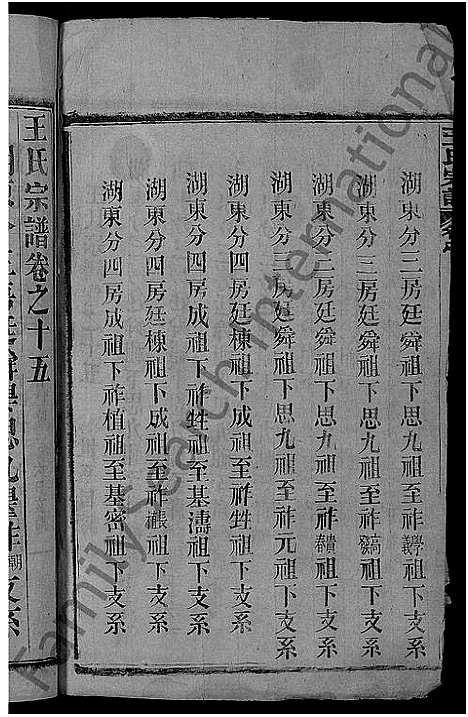 王氏宗譜
湖東分三房廷舜祖下思九祖至祚學義祖下支系
湖東分三房廷舜祖下思九祖至祚祖下支系
湖東分三房廷舜祖下思九祖至祚祖下支系
湖東分三房廷舜祖下思九祖至祚元祖下支系
湖東分四房廷棟祖下成祖至祚甡祖下支系
湖東分四房成祖下祚甡祖至基濤祖下支系
湖東分四房廷棟祖下成祖至祚祖下支系
湖東分四房成祖下祚植祖至基密祖下支系
王氏宗譜卷之十五
FamilySearch International